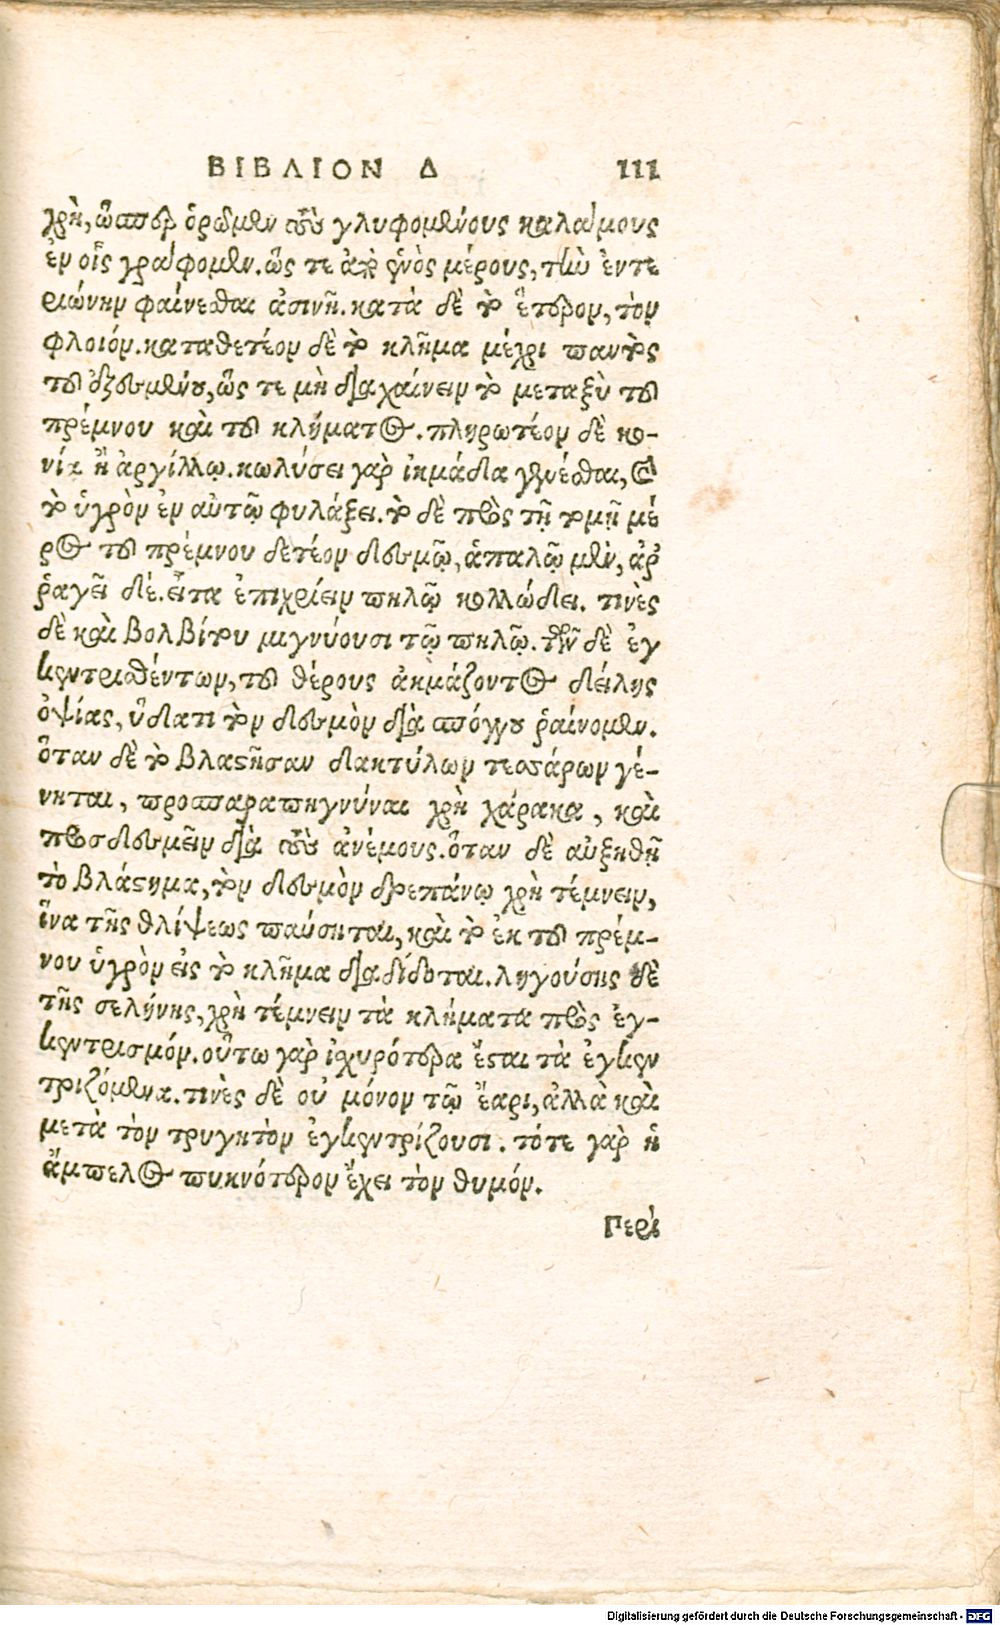 ΒΙΒΛΙΟΝ Δ 111
χρὴ, ὥσπερ ὁρῶμεν τοὺς γλυφομένους καλάμους
ἐν οἷς γράφομεν. ὥς τε ἀπὸ ἑνὸς μέρους, τὴν ἐντε
ριώνην φαίνεσθαι ἀσινῆ. κατὰ δὲ τὸ ἕτερον, τὸν
φλοιόν. καταθετέον δὲ τὸ κλῆμα μέχρι παντὸς
τοῦ ὀξυσμένου, ὥς τε μὴ διαχαίνειν τὸ μεταξὺ τοῦ
πρέμνου καὶ τοῦ κλήματος. πληρωτέον δὲ κο-
νίᾳ ἢ ἀργίλλῳ. κωλύσει γὰρ ἰκμάδα γενέσθαι, καὶ
τὸ ὑγρὸν ἐν αὐτῷ φυλάξει. τὸ δὲ πρὸς τῇ τομῇ μέ
ρος τοῦ πρέμνου δετέον δεσμῷ, ἁπαλῷ μὲν, ἀῤ
ῥαγεῖ δέ. εἶτα ἐπιχρίειν πηλῷ κολλώδει. τινὲς
δὲ καὶ βολβίτου μιγνύουσι τῷ πηλῷ. τῶν δὲ ἐγ
κεντρισθέντων, τοῦ θέρους ἀκμάζοντος δείλης
ὀψίας, ὕδατι τὸν δεσμὸν διὰ σπόγγου ῥαίνομεν.
ὅταν δὲ τὸ βλαστῆσαν δακτύλων τεσσάρων γέ-
νηται, προσπαραπηγνύναι χρὴ χάρακα, καὶ
προσδεσμεῖν διὰ τοὺς ἀνέμους. ὅταν δὲ αὐξηθῇ
τὸ βλάστημα, τὸν δεσμὸν δρεπάνῳ χρὴ τέμνειν,
ἵνα τῆς θλίψεως παύσηται, καὶ τὸ ἐκ τοῦ πρέμ-
νου ὑγρὸν εἰς τὸ κλῆμα διαδίδοται. ληγούσης δὲ
τῆς σελήνης, χρὴ τέμνειν τὰ κλήματα πρὸς ἐγ-
κεντρισμόν. οὕτω γὰρ ἰσχυρότερα ἔσται τὰ ἐγκεν
τριζόμενα. τινὲς δὲ οὐ μόνον τῷ ἔαρι, ἀλλὰ καὶ
μετὰ τὸν τρυγητὸν ἐγκεντρίζουσι. τότε γὰρ ἡ
ἄμπελος πυκνότερον ἔχει τὸν θυμόν.
Περὶ
Digitalisierung gefördert durch die Deutsche Forschungsgemeinschaft - DFG